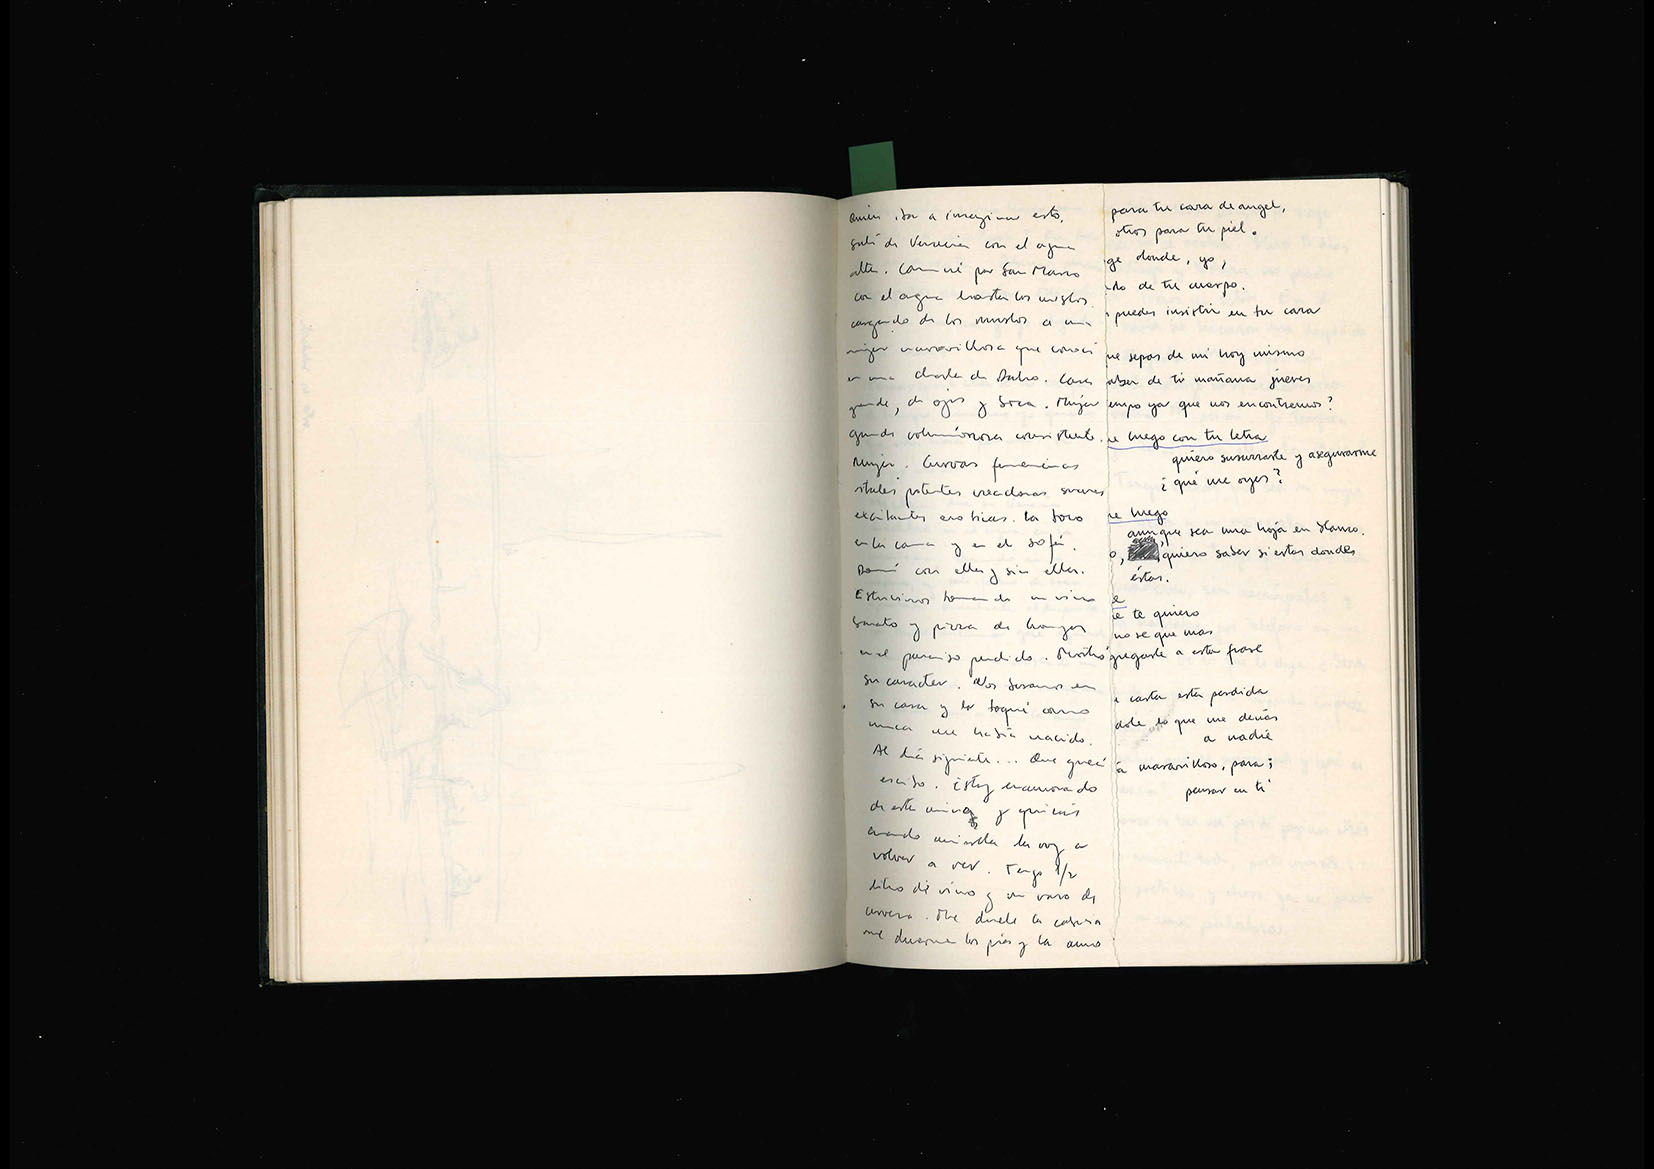 quién iba a imaginar esto,
salí de Venecia con el agua
alta. Caminé por San Marco
con el agua hasta los muslos
cargando de los muslos a una
mujer maravillosa que conocí
en una charla de Cara
grande, de ojos y boca. Mujer
grande voluminosa consistente.
Mujer. Curvas femeninas
vitales potentes creadoras suaves
excitantes eróticas. La toco
en la cama y en el sofá.
Dormí con ella y sin ella.
Estuvimos tomando un vino
barato y pizza de hongos
en el paraíso perdido. Mostró
su caracter. Nos besamos en
su casa y la toqué como
nunca me había nacido.
Al día siguiente... Que quedó
escrito. Estoy enamorado
de este
cuando amanezca la voy a
volver a ver. Tengo 1/2
litro de vino y un vaso de
cerveza. Me duele la cabeza
me duermo los pies y la amo
para tu cara de angel,
otros para tu piel.
ge donde, yo,
do de tu cuerpo.
puedes insistir en tu cara
ue sepas de mi hoy mismo
aber de ti mañana jueves
empo ya que nos encontremos?
e luego con tu letra
quiero susurrarte y asegurarme
¿qué me oyes?
e luego
aunque sea una hoja en blanco.
o, quiero saber si estas donde
éstas.
e
e te quiero
no se que mas
gregarle a esta frase
carta esta perdida
dole lo que me decías
a nadie
a maravilloso, para;
pensar en ti